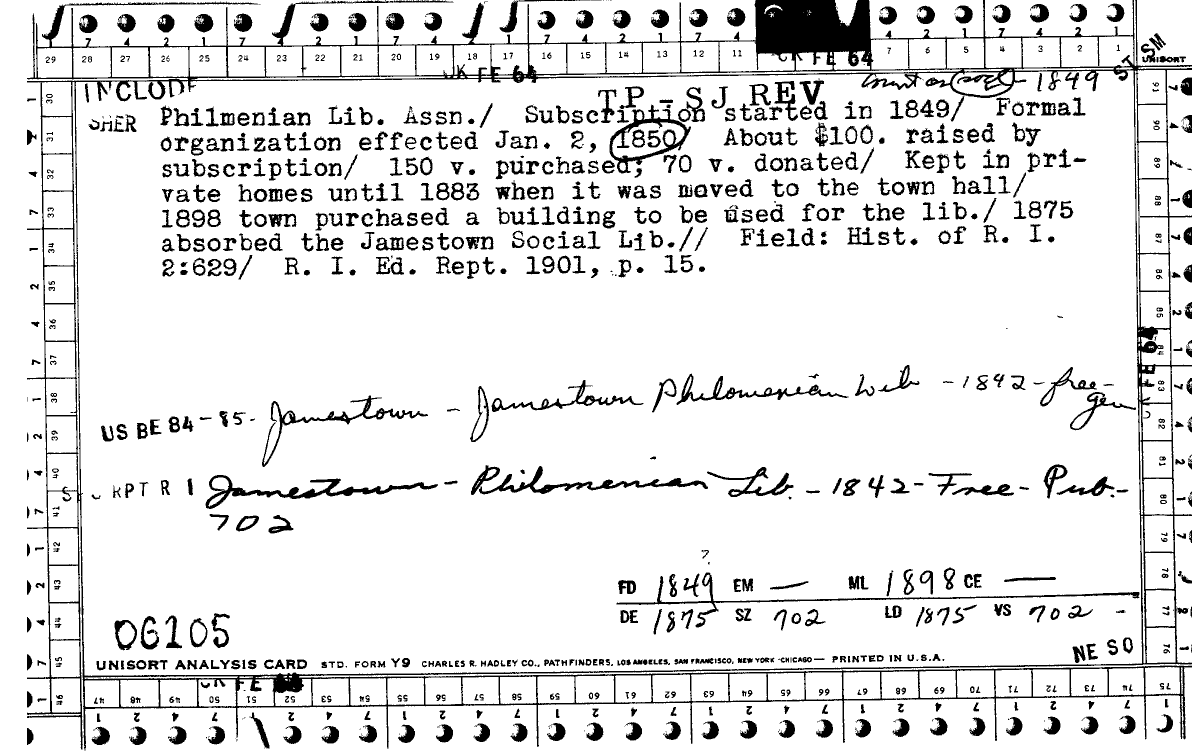 7 4 2 1 7 4 2 1 7 4 2 1 7 4 2 1 4 2 1 7 4 2 1
29 28 27 26 25 24 23 22 21 20 19 18 17 16 15 14 13 12 11 7 6 5 4 3 2 1 UNISORT
CK FE 64 CK FE 64 ST SM
INCLODE TP-SJ REV count as (socl) - 1849
SHER Philmenian Lib. Assn./ Subscription started in 1849/ Formal
organization effected Jan. 2, 1850/ About $100. raised by
subscription/ 150 v. purchased; 70 v. donated/ Kept in pri-
vate homes until 1883 when it was moved to the town hall/
1898 town purchased a building to be used for the lib./ 1875
absorbed the Jamestown Social Lib.// Field: Hist. of R. I.
2:629/ R. I. Ed. Rept. 1901, p. 15.
US BE 84-85. Jamestown - Jamestown Philomenian Lib - 1842 - free-
gen
RPT R I Jamestown - Philomenian Lib. - 1842 - Free - Pub. -
702
?
FD 1849 EM — ML 1898 CE —
DE 1875 SZ 702 LD 1875 VS 702 -
06105
UNISORT ANALYSIS CARD STD. FORM Y9 CHARLES R. HADLEY CO., PATHFINDERS, LOS ANGELES, SAN FRANCISCO, NEW YORK - CHICAGO — PRINTED IN U.S.A.
NE SO
CK FE
47 48 49 50 51 52 53 54 55 56 57 58 59 60 61 62 63 64 65 66 67 68 69 70 71 72 73 74 75